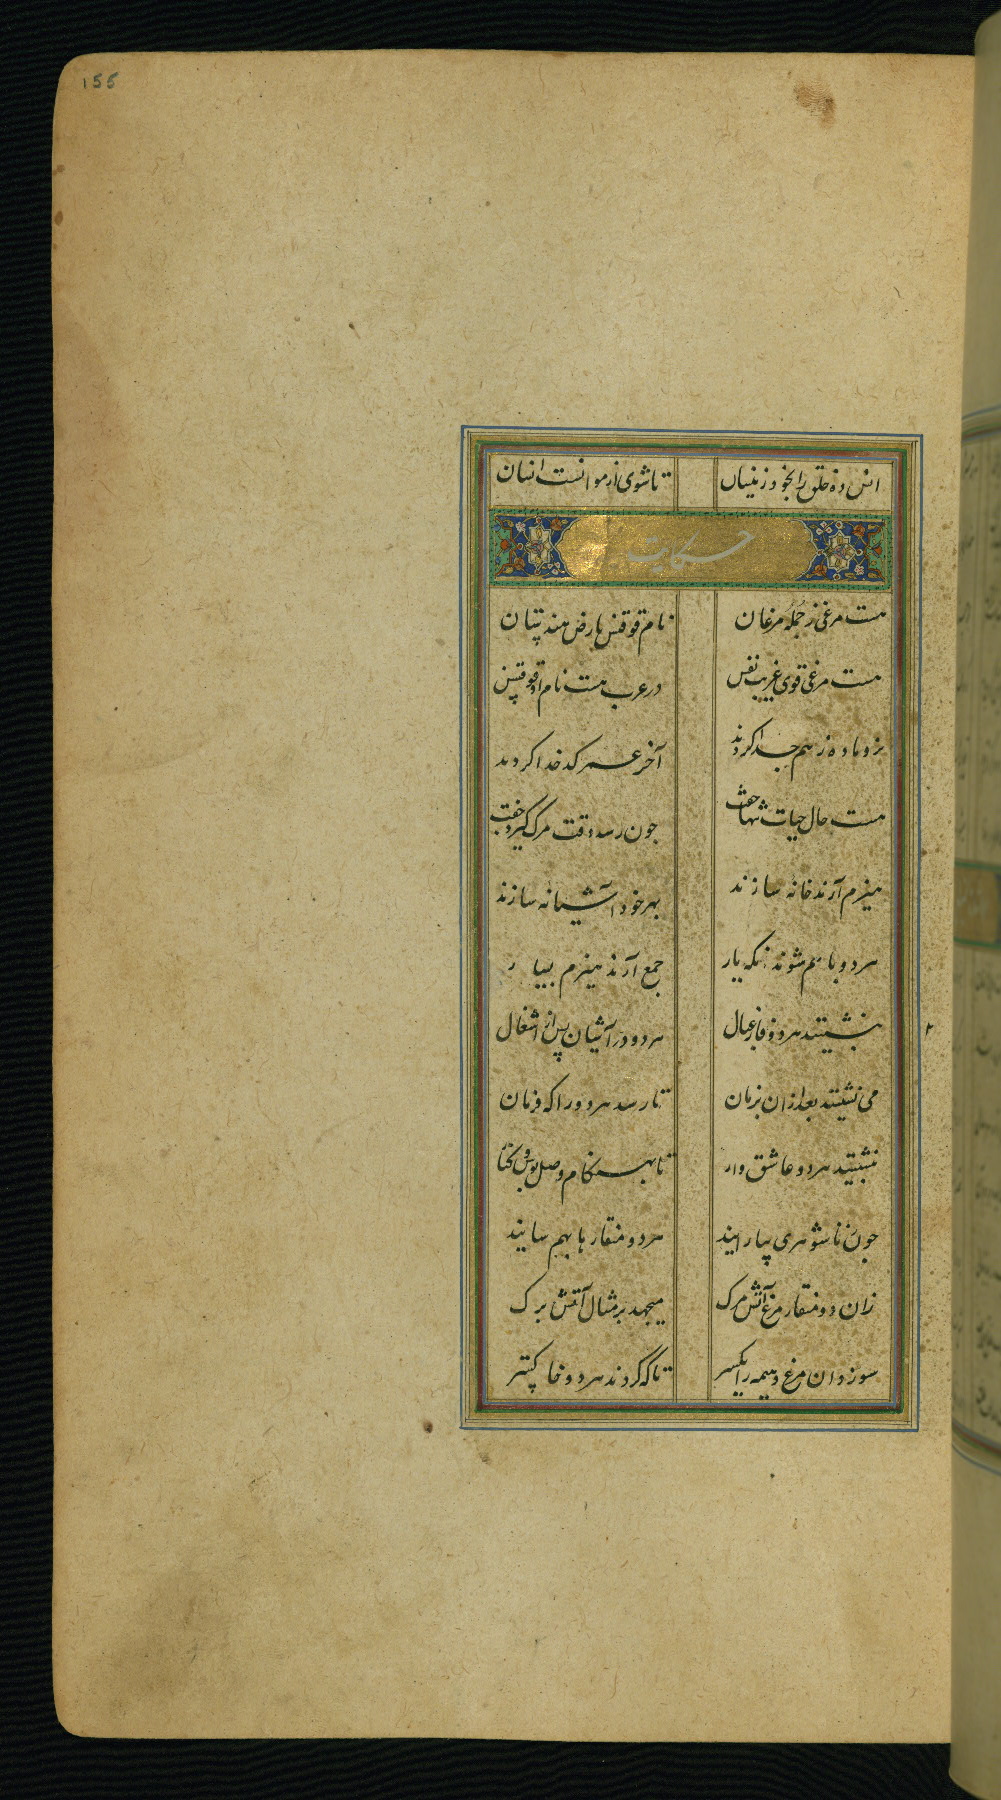 155
انس ده خلق را بخود زینسان	تا شوی از موانست انسان
حکایت
هست مرغی ز جمله مرغان	نام قوقنس بارض هندستان
هست مرغی قوی غریب نفس	در عرب هست نام او ققنس
نر و ماده ز هم جدا کردند	آخر عمر کدخدا کردند
هست حال حیات تنها جفت	چون رسد وقت مرک کیرد جفت
هیزم آرند خانه سازند	بهر خود آشیانه سازند
هر دو با هم شوند یار	جمع آرند هیزم بسیار
بنشینند هر دو فارغبال	هر دو در آشیان پس از اشغال
می نشینند بعد ازان بزمان	تا رسد هر دو را که فرمان
نشینند هر دو عاشق وار	تا بهنکام وصل بوس و کنار
چون زناشوهری بیارایند	هر دو منقارها بهم سایند
زان دو منقار مرغ آتش مرک	میجهد بر مثال آتش برک
سوزد ان مرغ و هیمه را یکسر	تا که کردند هر دو خاکستر